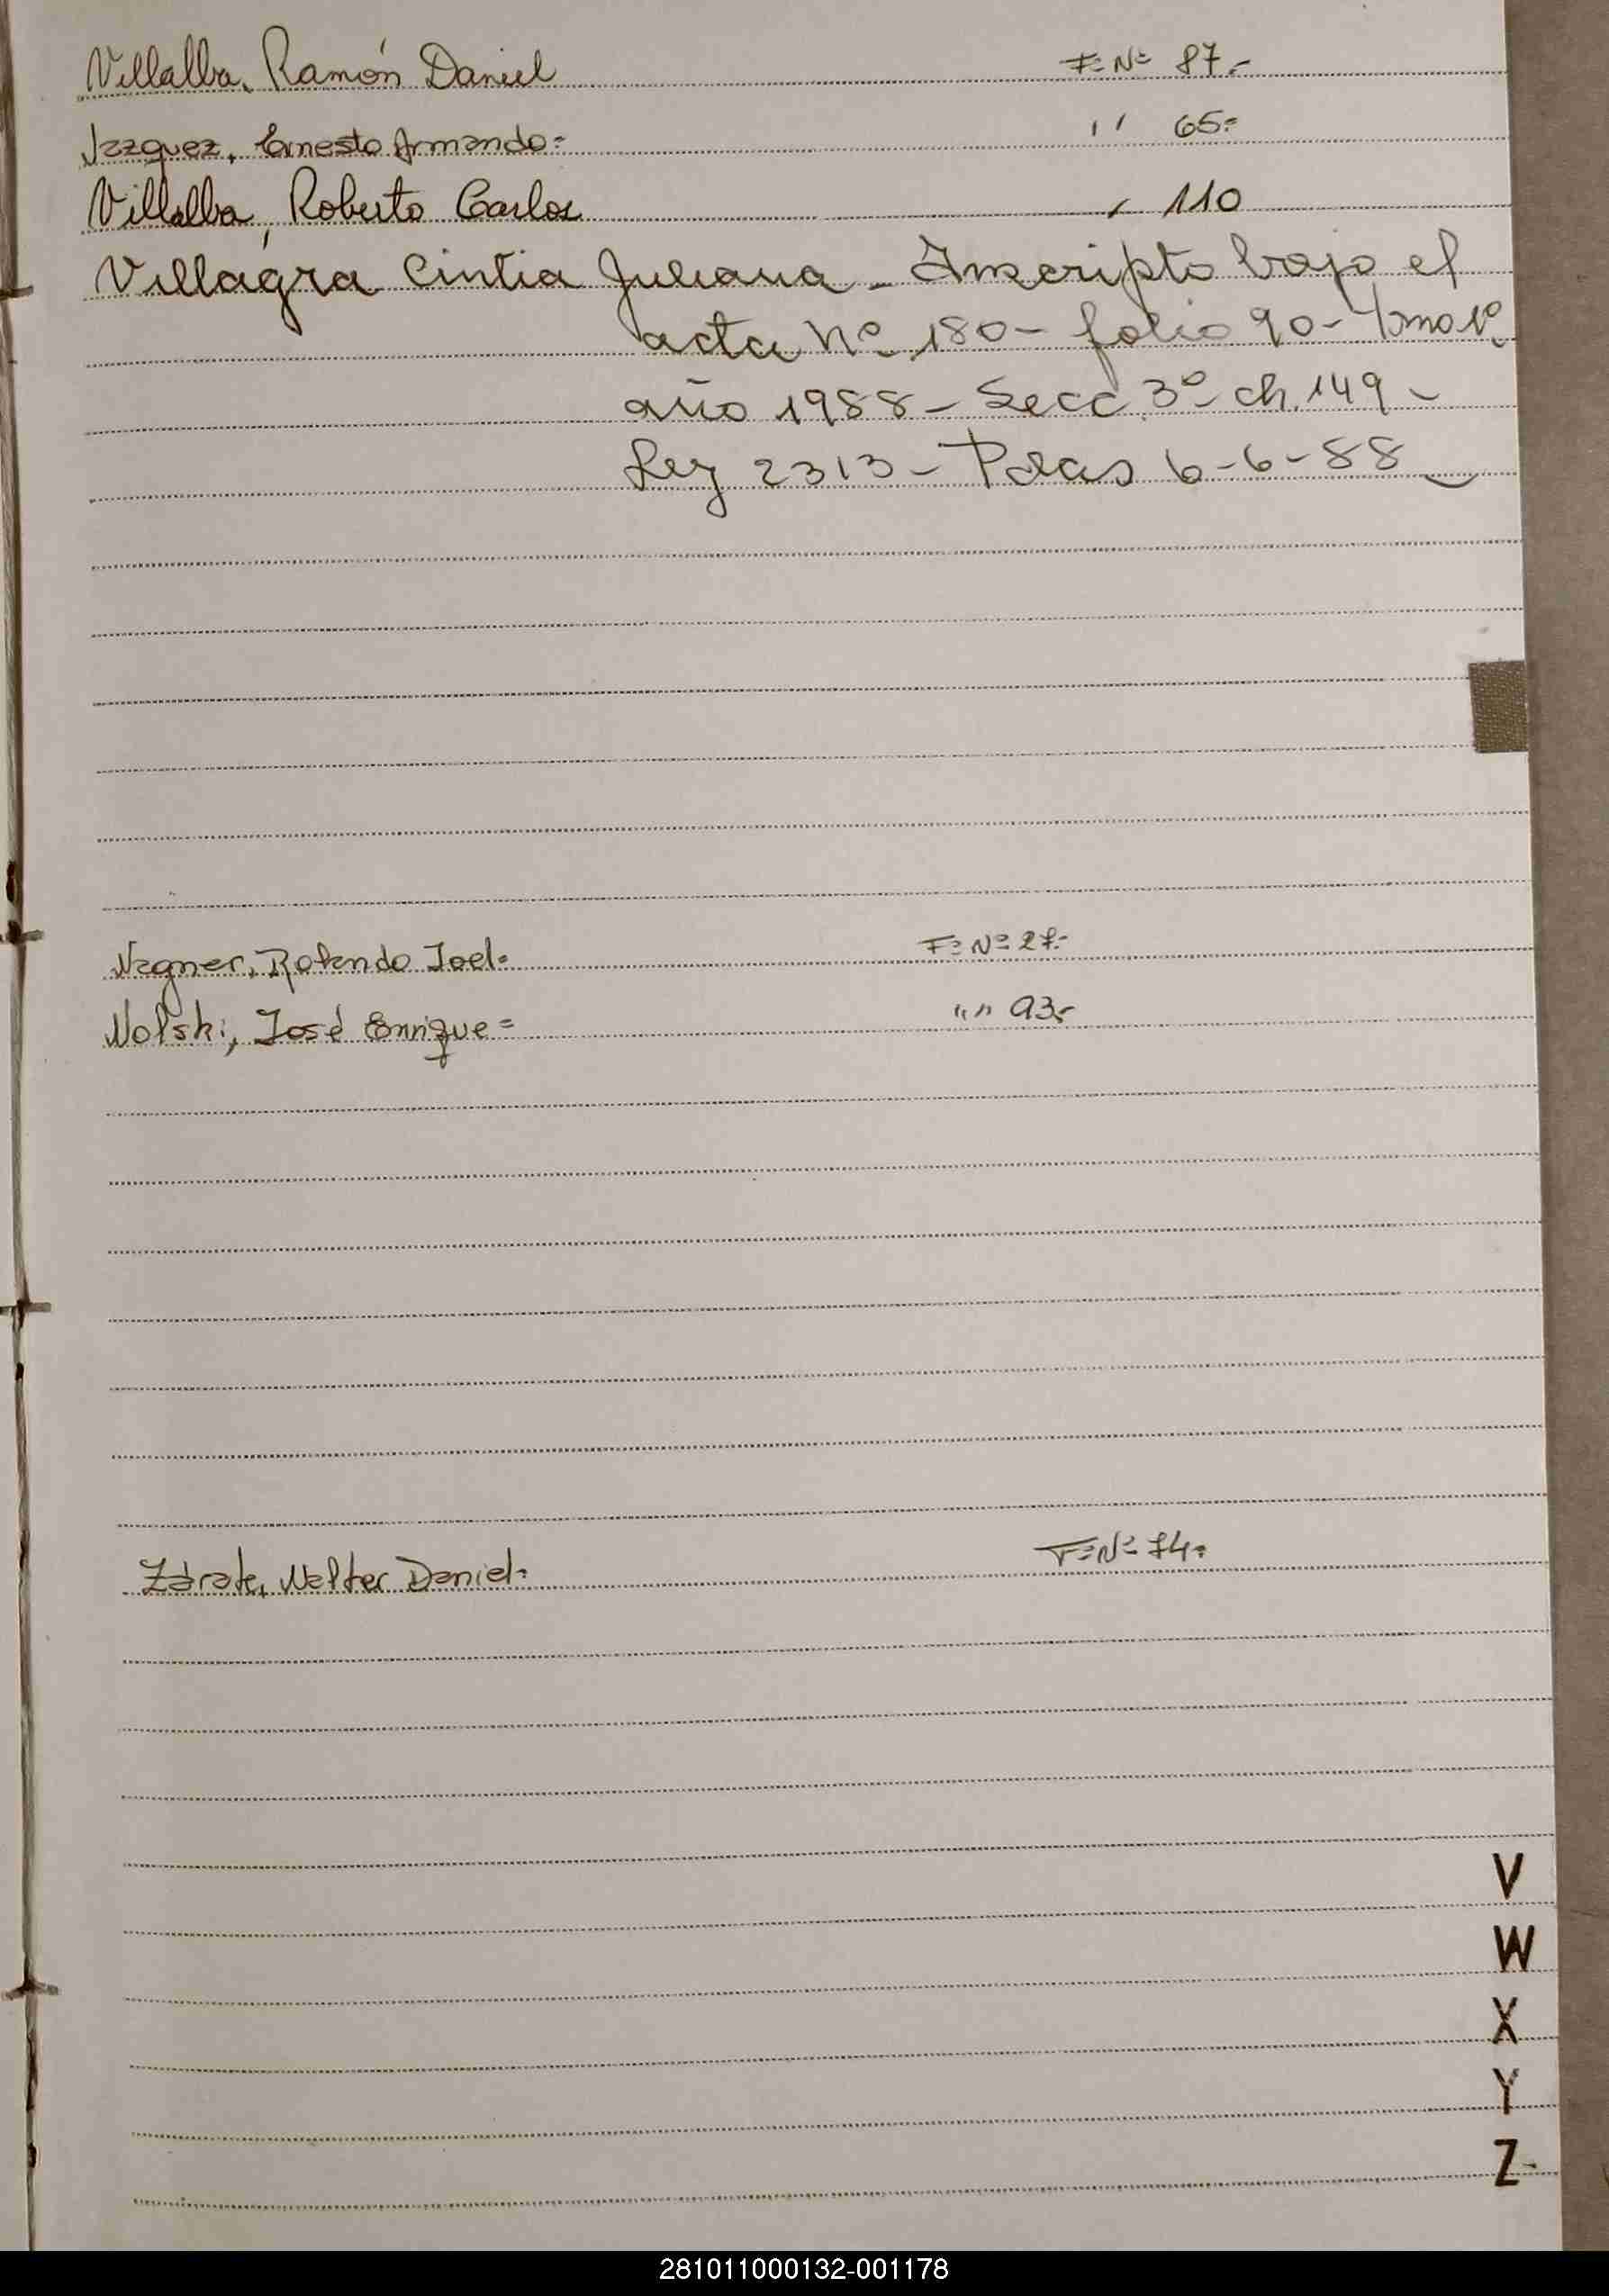 Villalba, Ramón Daniel F= Nº 87.-
Vazquez, Ernesto Armando= '' 65=
Villalba, Roberto Carlos 110
Villagra Cintia Juliana - Inscripto bajo el
acta Nº 180 - folio 90 - tomo 1º
año 1988 - Secc. 3º ch. 149 -
Ley 2313 - Pdas 6-6-88
Wagner, Rolando Joel= F= Nº 27.-
Wolski, José Enrique= " " 93.-
Zárate, Walter Daniel= F= Nº 74=
V
W
X
Y
Z
281011000132-001178